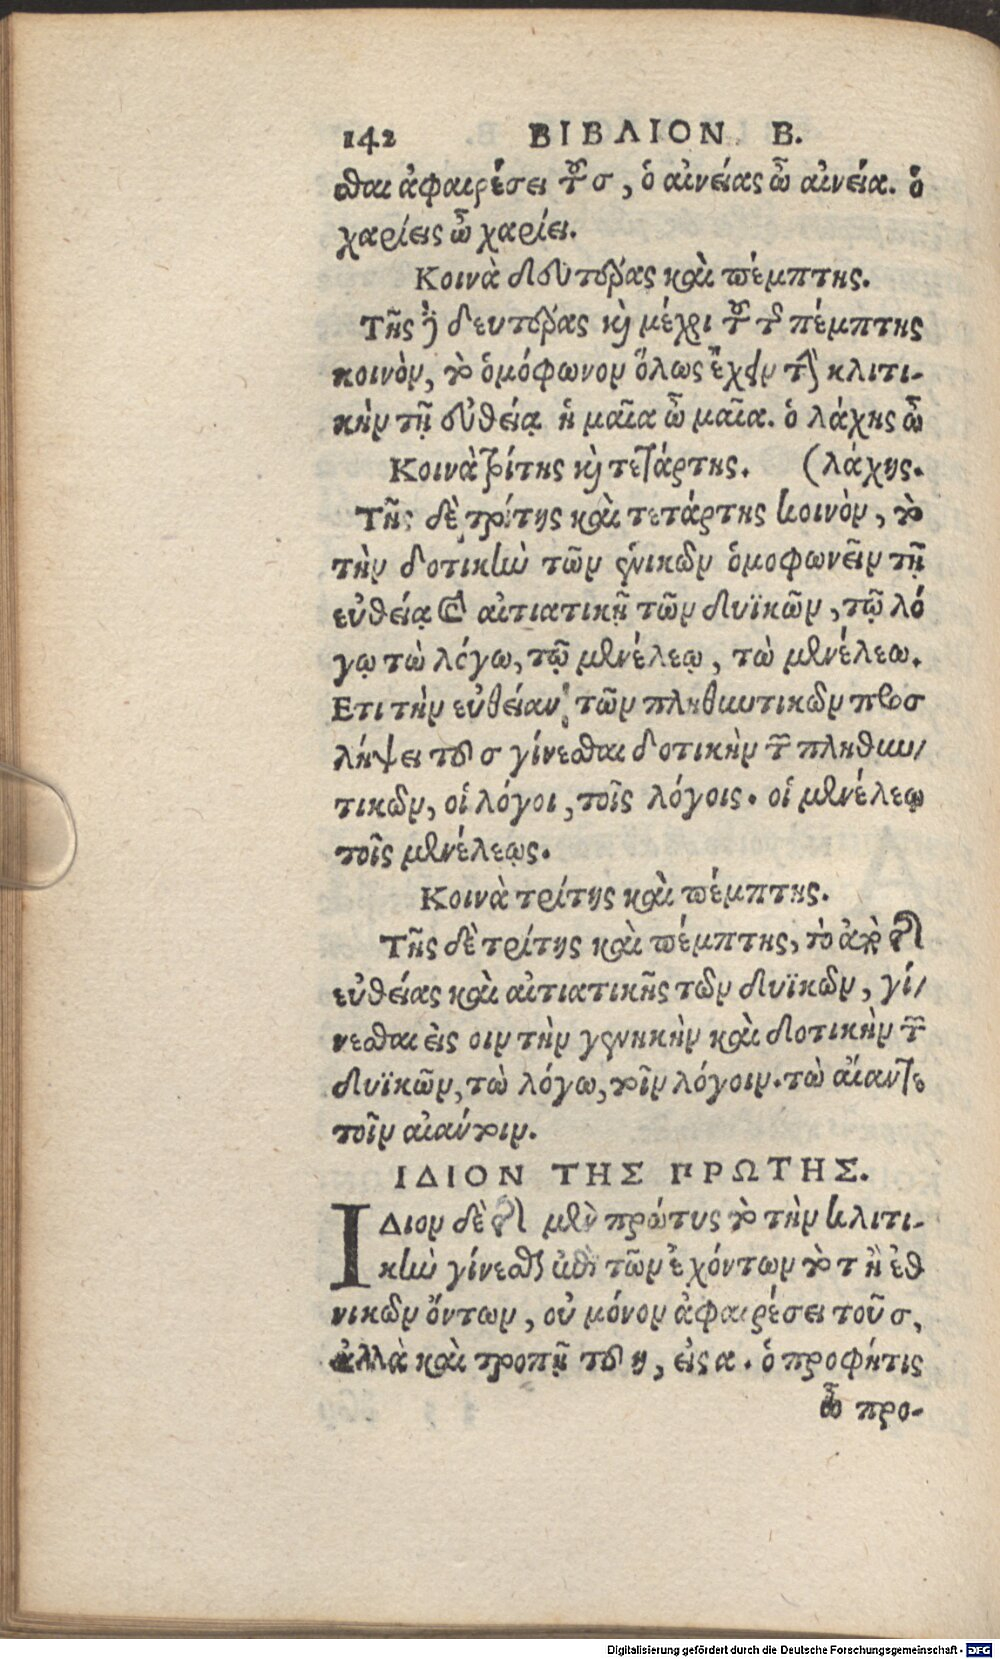 142 ΒΙΒΛΙΟΝ Β.
σθαι ἀφαιρέσει τοῦ σ, ὁ αἰνείας ὦ αἰνεία. ὁ
χαρίεις ὦ χαρίει.
Κοινὰ δευτέρας καὶ πέμπτης.
Τῆς δὲ δευτέρας καὶ μέχρι τοῦ τῆς πέμπτης
κοινὸν, τὸ ὁμόφωνον ὅλως ἔχειν τὴν κλιτι-
κὴν τῇ εὐθείᾳ ἡ μαῖα ὦ μαῖα. ὁ λάχης ὦ
Κοινὰ τρίτης καὶ τετάρτης. (λάχης.
Τῆς δὲ τρίτης καὶ τετάρτης κοινὸν, τὸ
τὴν δοτικὴν τῶν ἑνικῶν ὁμοφωνεῖν τῇ
εὐθείᾳ καὶ αἰτιατικῇ τῶν δυϊκῶν, τῷ λό
γῳ τὼ λόγω, τῷ μενέλεῳ, τὼ μενέλεω.
Ετι τὴν εὐθείαν τῶν πληθυντικῶν προσ
λήψει τοῦ σ γίνεσθαι δοτικὴν τῶν πληθυν/
τικῶν, οἱ λόγοι, τοῖς λόγοις. οἱ μενέλεῳ
τοῖς μενέλεῳς.
Κοινὰ τρίτης καὶ πέμπτης.
Τῆς δὲ τρίτης καὶ πέμπτης, τὸ ἀπὸ τῆς
εὐθείας καὶ αἰτιατικῆς τῶν δυϊκῶν, γί/
νεσθαι εἰς οιν τὴν γενηκὴν καὶ δοτικὴν τῶν
δυϊκῶν, τὼ λόγω, τοῖν λόγοιν. τὼ αἴαντε
τοῖν αἰαύτοιν.
ΙΔΙΟΝ ΤΗΣ ΠΡΩΤΗΣ.
ΙΔιον δὲ τῆς μὲν πρώτης τὸ τὴν κλιτι-
κὴν γίνεσθαι ἀπὸ τῶν ἐχόντων τὸ τ ἢ ἐθ
νικῶν ὄντων, οὐ μόνον ἀφαιρέσει τοῦ σ,
ἀλλὰ καὶ τροπῇ τοῦ η, εἰς α. ὁ προφήτις
ὦ προ-
Digitalisierung gefördert durch die Deutsche Forschungsgemeinschaft - DFG